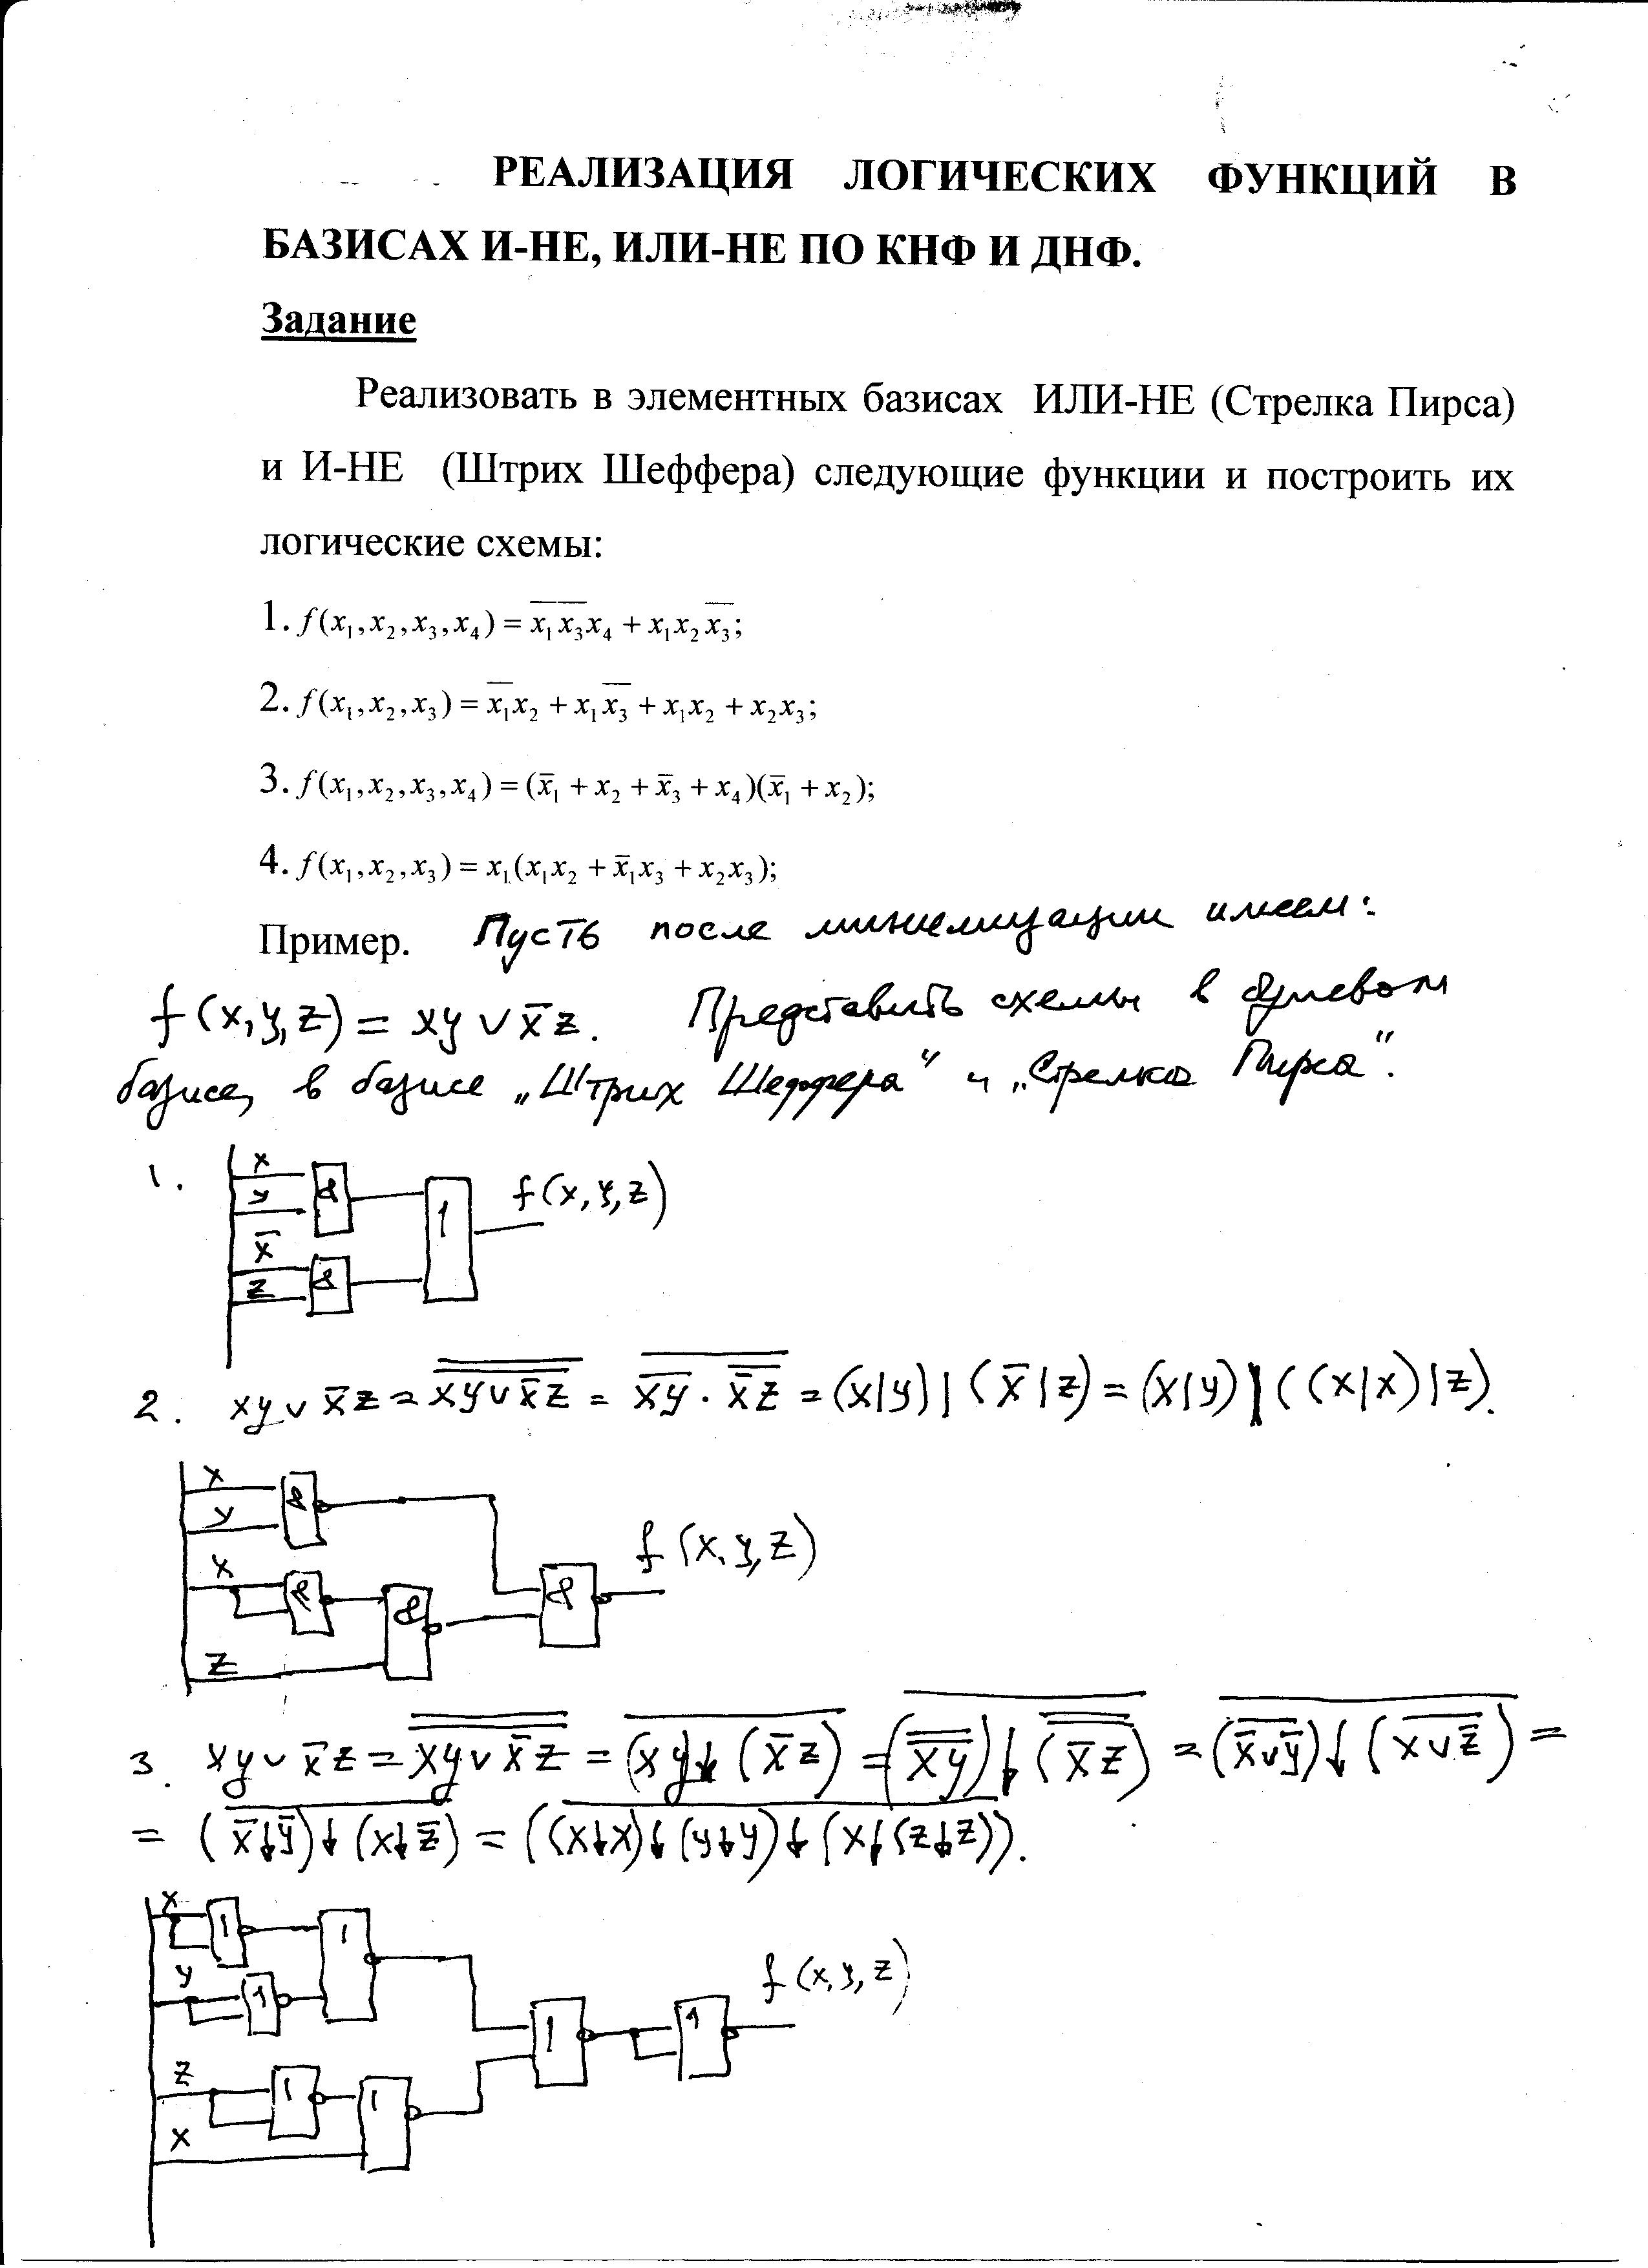 РЕАЛИЗАЦИЯ ЛОГИЧЕСКИХ ФУНКЦИЙ В
БАЗИСАХ И-НЕ, ИЛИ-НЕ ПО КНФ И ДНФ.
Задание
Реализовать в элементных базисах ИЛИ-НЕ (Стрелка Пирса)
и И-НЕ (Штрих Шеффера) следующие функции и построить их
логические схемы:
1. f(x₁,x₂,x₃,x₄) = x̅₁x̅₃x₄ + x₁x₂x̅₃;
2. f(x₁,x₂,x₃) = x̅₁x₂ + x₁x̅₃ + x₁x₂ + x₂x₃;
3. f(x₁,x₂,x₃,x₄) = (x̅₁ + x₂ + x̅₃ + x₄)(x̅₁ + x₂);
4. f(x₁,x₂,x₃) = x₁(x₁x₂ + x̅₁x₃ + x₂x₃);
Пример. Пусть после минимизации имеем:
f(x,y,z) = xy ∨ x̅z. Представить схемы в булевом
базисе, в базисе „Штрих Шеффера" и „Стрелка Пирса".
1.
x
y
x̅
z
&
&
1
f(x,y,z)
2. xy ∨ x̅z = \overline{\overline{xy ∨ x̅z}} = \overline{\overline{xy} · \overline{x̅z}} = (x|y)|(x̅|z) = (x|y)|((x|x)|z).
x
y
x
z
&
&
&
&
f(x,y,z)
3. xy ∨ x̅z = \overline{\overline{xy ∨ x̅z}} = \overline{(xy)↓(x̅z)} = \overline{(\overline{\overline{xy}})↓(\overline{\overline{x̅z}})} = \overline{(\overline{x̅∨y̅})↓(\overline{x∨z̅})} =
= \overline{(x̅↓y̅)↓(x↓z̅)} = \overline{((x↓x)↓(y↓y)↓(x↓(z↓z))}.
x
y
z
x
1
1
1
1
1
1
1
f(x,y,z)